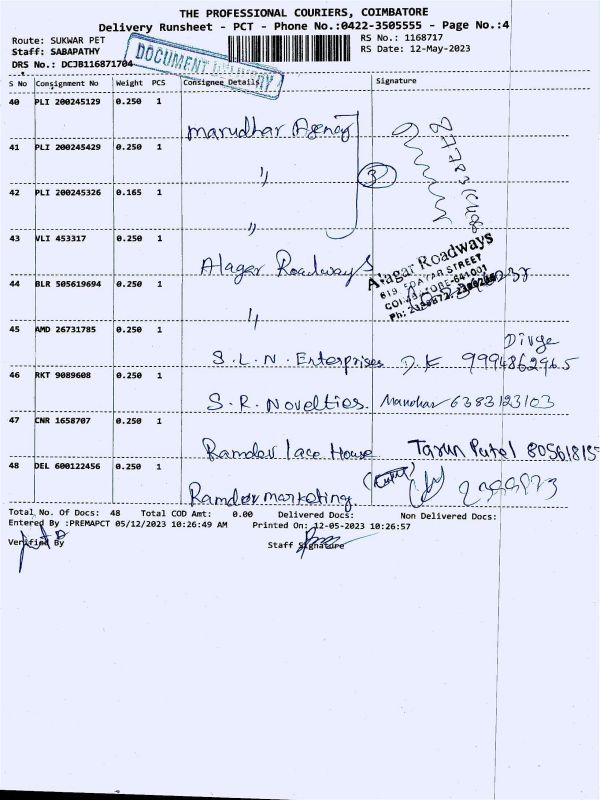 THE PROFESSIONAL COURIERS, COIMBATORE
Delivery Runsheet - PCT - Phone No.:0422-3505555 - Page No.:4
Route: SUKWAR PET
RS No.: 1168717
Staff: SABAPATHY
RS Date: 12-May-2023
DRS No.: DCJB116871704
DOCUMENT DELIVERY
S No Consignment No Weight PCS Consignee Details Signature
40 PLI 200245129 0.250 1
Marudhar Agency
41 PLI 200245429 0.250 1
"
3
42 PLI 200245326 0.165 1
"
43 VLI 453317 0.250 1
Alagar Roadways
Alagar Roadways
COIMBATORE-641001
44 BLR 505619694 0.250 1
"
45 AMD 26731785 0.250 1
S.L.N. Enterprises D.K 9994862965
46 RKT 9089608 0.250 1
S.R. Novelties. Manohar 6383123103
47 CNR 1658707 0.250 1
Ramdev lace House Tarun Patel
48 DEL 600122456 0.250 1
Ramdev marketing
Total No. Of Docs: 48 Total COD Amt: 0.00 Delivered Docs: Non Delivered Docs:
Entered By :PREMAPCT 05/12/2023 10:26:49 AM Printed On: 12-05-2023 10:26:57
Verified By Staff Signature